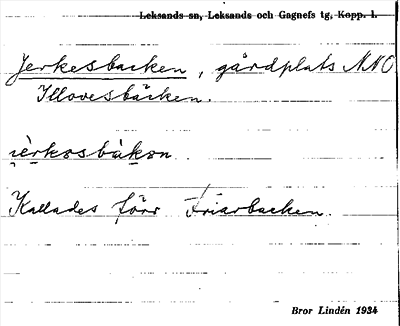 Leksands sn, Leksands och Gagnefs tg, Kopp. l.
Jerkesbacken, gårdplats NNO
Illovesbäcken.
ı̣èrkosbàkon
Kallades förr Friarbacken.
Bror Lindén 1934